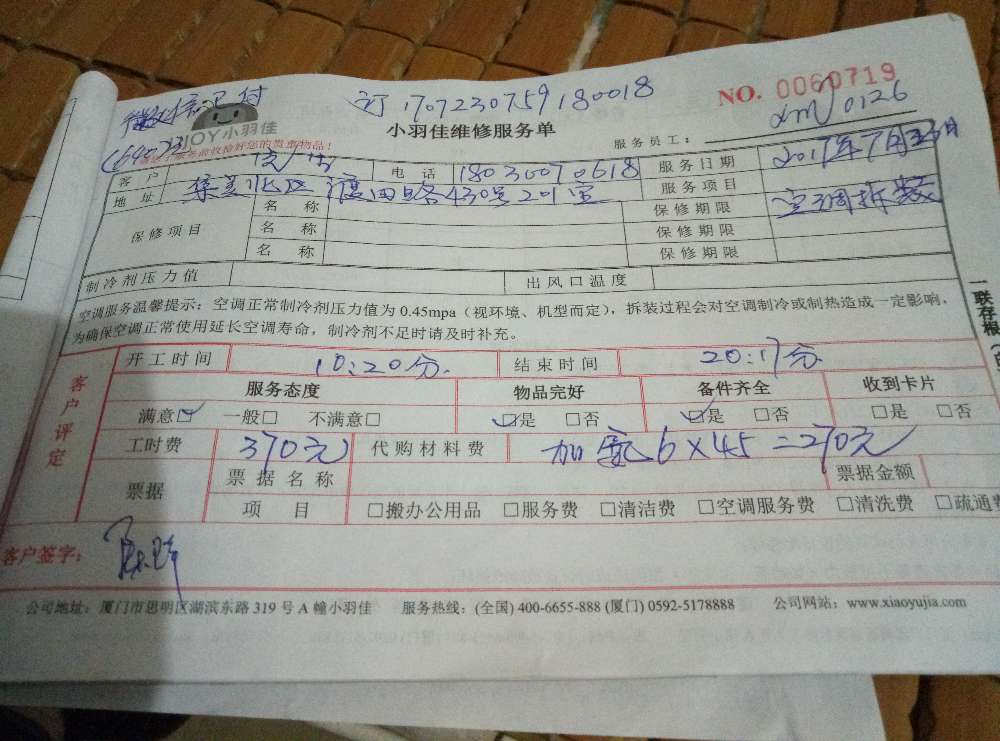 微信已付 订1707230759180018 NO. 0060719
JOY小羽佳 小羽佳维修服务单 服务员工: xm/0126
客户 电话 18030070618 服务日期 2017年7月
地址 集美 430号201室 服务项目 空调拆
保修项目 名称 保修期限
名称 保修期限
名称 保修期限
制冷剂压力值 出风口温度
空调服务温馨提示:空调正常制冷剂压力值为 0.45mpa(视环境、机型而定),拆装过程会对空调制冷或制热造成一定影响,
为确保空调正常使用延长空调寿命,制冷剂不足时请及时补充。
一联存根
客户评定
开工时间 10:20分 结束时间 20:17分
服务态度 物品完好 备件齐全 收到卡片
满意☑ 一般□ 不满意□ ☑是 □否 ☑是 □否 □是 □否
工时费 370元 代购材料费 加氟6×45=270元
票据 票据名称 票据金额
项目 □搬办公用品 □服务费 □清洁费 □空调服务费 □清洗费 □疏通费
客户签字:
公司地址:厦门市思明区湖滨东路 319 号 A 幢小羽佳 服务热线:(全国) 400-6655-888 (厦门) 0592-5178888 公司网站:www.xiaoyujia.com